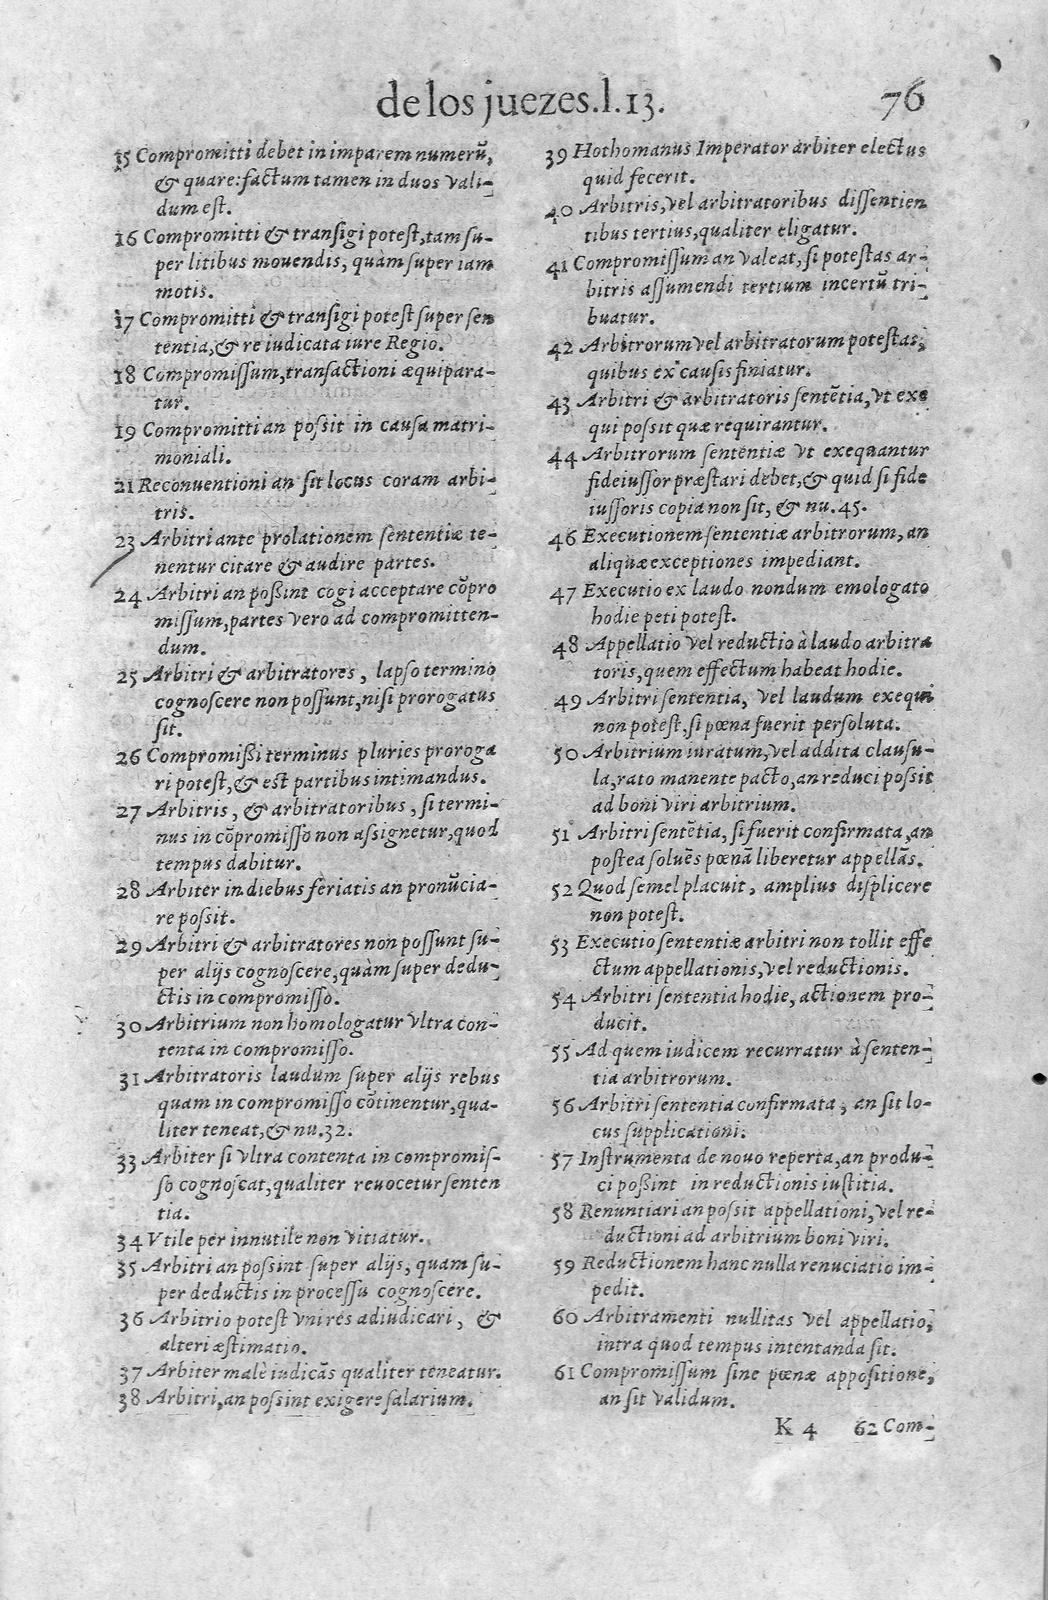 de los juezes.l.13. 76
15 Compromitti debet in imparem numerũ,
& quare: factum tamen in duos vali-
dum est.
16 Compromitti & transigi potest, tam su-
per litibus mouendis, quàm super iam
motis.
17 Compromitti & transigi potest super sen
tentia, & re iudicata iure Regio.
18 Compromissum, transactioni æquipara-
tur.
19 Compromitti an possit in causa matri-
moniali.
21 Reconuentioni an sit locus coram arbi-
tris.
23 Arbitri ante prolationem sententiæ te-
nentur citare & audire partes.
24 Arbitri an possint cogi acceptare cõpro
missum, partes vero ad compromitten-
dum.
25 Arbitri & arbitratores, lapso termino
cognoscere non possunt, nisi prorogatus
sit.
26 Compromissi terminus pluries proroga
ri potest, & est partibus intimandus.
27 Arbitris, & arbitratoribus, si termi-
nus in cõpromisso non assignetur, quod
tempus dabitur.
28 Arbiter in diebus feriatis an pronũcia-
re possit.
29 Arbitri & arbitratores non possunt su-
per alijs cognoscere, quàm super dedu-
ctis in compromisso.
30 Arbitrium non homologatur vltra con-
tenta in compromisso.
31 Arbitratoris laudum super alijs rebus
quam in compromisso cõtinentur, qua-
liter teneat, & nu.32.
33 Arbiter si vltra contenta in compromis-
so cognoscat, qualiter reuocetur senten
tia.
34 Vtile per innutile non vitiatur.
35 Arbitri an possint super alijs, quam su-
per deductis in processu cognoscere.
36 Arbitrio potest vni res adiudicari, &
alteri æstimatio.
37 Arbiter malè iudicãs qualiter teneatur.
38 Arbitri, an possint exigere salarium.
39 Hothomanus Imperator arbiter electus
quid fecerit.
40 Arbitris, vel arbitratoribus dissentien
tibus tertius, qualiter eligatur.
41 Compromissum an valeat, si potestas ar-
bitris assumendi tertium incertũ tri-
buatur.
42 Arbitrorum vel arbitratorum potestas,
quibus ex causis finiatur.
43 Arbitri & arbitratoris sentẽtia, vt exe
qui possit quæ requirantur.
44 Arbitrorum sententiæ vt exequantur
fideiussor præstari debet, & quid si fide
iussoris copia non sit, & nu.45.
46 Executionem sententiæ arbitrorum, an
aliquæ exceptiones impediant.
47 Executio ex laudo nondum emologato
hodie peti potest.
48 Appellatio vel reductio à laudo arbitra
toris, quem effectum habeat hodie.
49 Arbitri sententia, vel laudum exequi
non potest, si pœna fuerit persoluta.
50 Arbitrium iuratum, vel addita clausu-
la, rato manente pacto, an reduci possit
ad boni viri arbitrium.
51 Arbitri sentẽtia, si fuerit confirmata, an
postea soluẽs pœnã liberetur appellãs.
52 Quod semel placuit, amplius displicere
non potest.
53 Executio sententiæ arbitri non tollit effe
ctum appellationis, vel reductionis.
54 Arbitri sententia hodie, actionem pro-
ducit.
55 Ad quem iudicem recurratur à senten-
tia arbitrorum.
56 Arbitri sententia confirmata, an sit lo-
cus supplicationi.
57 Instrumenta de nouo reperta, an produ-
ci possint in reductionis iustitia.
58 Renuntiari an possit appellationi, vel re-
ductioni ad arbitrium boni viri.
59 Reductionem hanc nulla renuciatio im-
pedit.
60 Arbitramenti nullitas vel appellatio,
intra quod tempus intentanda sit.
61 Compromissum sine pœnæ appositione,
an sit validum.
K 4 62 Com-